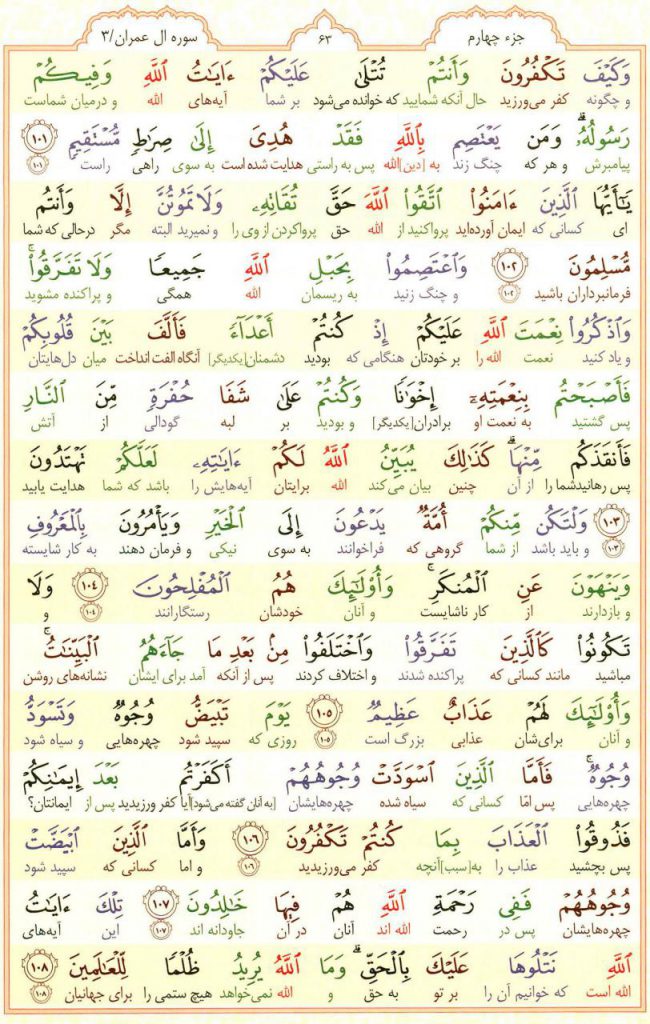 جزء چهارم ۶۳ سوره ال عمران/۳
وَكَيْفَ تَكْفُرُونَ وَأَنتُمْ تُتْلَىٰ عَلَيْكُمْ ءَايَٰتُ ٱللَّهِ وَفِيكُمْ
و چگونه کفر می‌ورزید حال آنکه شمایید که خوانده می‌شود بر شما آیه‌های الله و درمیان شماست
رَسُولُهُۥ ۗ وَمَن يَعْتَصِم بِٱللَّهِ فَقَدْ هُدِىَ إِلَىٰ صِرَٰطٍ مُّسْتَقِيمٍ ۱۰۱
پیامبرش و هر که چنگ زند به [دین]الله پس به راستی هدایت شده است به سوی راهی راست ۱۰۱
يَٰٓأَيُّهَا ٱلَّذِينَ ءَامَنُوا۟ ٱتَّقُوا۟ ٱللَّهَ حَقَّ تُقَاتِهِۦ وَلَا تَمُوتُنَّ إِلَّا وَأَنتُم
ای کسانی که ایمان آورده‌اید پرواکنید از الله حق پرواکردن از وی را و نمیرید البته مگر درحالی که شما
مُّسْلِمُونَ ۱۰۲ وَٱعْتَصِمُوا۟ بِحَبْلِ ٱللَّهِ جَمِيعًا وَلَا تَفَرَّقُوا۟ ۚ
فرمانبرداران باشید ۱۰۲ و چنگ زنید به ریسمان الله همگی و پراکنده مشوید
وَٱذْكُرُوا۟ نِعْمَتَ ٱللَّهِ عَلَيْكُمْ إِذْ كُنتُمْ أَعْدَآءً فَأَلَّفَ بَيْنَ قُلُوبِكُمْ
و یاد کنید نعمت الله را بر خودتان هنگامی که بودید دشمنان[یکدیگر] آنگاه الفت انداخت میان دل‌هایتان
فَأَصْبَحْتُم بِنِعْمَتِهِۦٓ إِخْوَٰنًا وَكُنتُمْ عَلَىٰ شَفَا حُفْرَةٍ مِّنَ ٱلنَّارِ
پس گشتید به نعمت او برادران[یکدیگر] و بودید بر لبه گودالی از آتش
فَأَنقَذَكُم مِّنْهَا ۗ كَذَٰلِكَ يُبَيِّنُ ٱللَّهُ لَكُمْ ءَايَٰتِهِۦ لَعَلَّكُمْ تَهْتَدُونَ
پس رهانیدشما را از آن چنین بیان می‌کند الله برایتان آیه‌هایش را باشد که شما هدایت یابید
۱۰۳ وَلْتَكُن مِّنكُمْ أُمَّةٌ يَدْعُونَ إِلَى ٱلْخَيْرِ وَيَأْمُرُونَ بِٱلْمَعْرُوفِ
۱۰۳ و باید باشد از شما گروهی که فراخوانند به سوی نیکی و فرمان دهند به کار شایسته
وَيَنْهَوْنَ عَنِ ٱلْمُنكَرِ ۚ وَأُو۟لَٰٓئِكَ هُمُ ٱلْمُفْلِحُونَ ۱۰۴ وَلَا
و بازدارند از کار ناشایست و آنان خودشان رستگارانند ۱۰۴ و
تَكُونُوا۟ كَٱلَّذِينَ تَفَرَّقُوا۟ وَٱخْتَلَفُوا۟ مِنۢ بَعْدِ مَا جَآءَهُمُ ٱلْبَيِّنَٰتُ ۚ
مباشید مانند کسانی که پراکنده شدند و اختلاف کردند پس از آنکه آمد برای ایشان نشانه‌های روشن
وَأُو۟لَٰٓئِكَ لَهُمْ عَذَابٌ عَظِيمٌ ۱۰۵ يَوْمَ تَبْيَضُّ وُجُوهٌ وَتَسْوَدُّ
و آنان برای‌شان عذابی بزرگ است ۱۰۵ روزی که سپید شود چهره‌هایی و سیاه شود
وُجُوهٌ ۚ فَأَمَّا ٱلَّذِينَ ٱسْوَدَّتْ وُجُوهُهُمْ أَكَفَرْتُم بَعْدَ إِيمَٰنِكُمْ
چهره‌هایی پس امّا کسانی که سیاه شده چهره‌هایشان [به آنان گفته می‌شود]آیا کفر ورزیدید پس از ایمانتان؟
فَذُوقُوا۟ ٱلْعَذَابَ بِمَا كُنتُمْ تَكْفُرُونَ ۱۰۶ وَأَمَّا ٱلَّذِينَ ٱبْيَضَّتْ
پس بچشید عذاب را به[سبب]آنچه کفر می‌ورزیدید ۱۰۶ و اما کسانی که سپید شود
وُجُوهُهُمْ فَفِى رَحْمَةِ ٱللَّهِ هُمْ فِيهَا خَٰلِدُونَ ۱۰۷ تِلْكَ ءَايَٰتُ
چهره‌هایشان پس در رحمت الله اند آنان در آن جاودانه اند ۱۰۷ این آیه‌های
ٱللَّهِ نَتْلُوهَا عَلَيْكَ بِٱلْحَقِّ ۗ وَمَا ٱللَّهُ يُرِيدُ ظُلْمًا لِّلْعَٰلَمِينَ ۱۰۸
الله است که خوانیم آن را بر تو به حق و الله نمی‌خواهد هیچ ستمی را برای جهانیان ۱۰۸